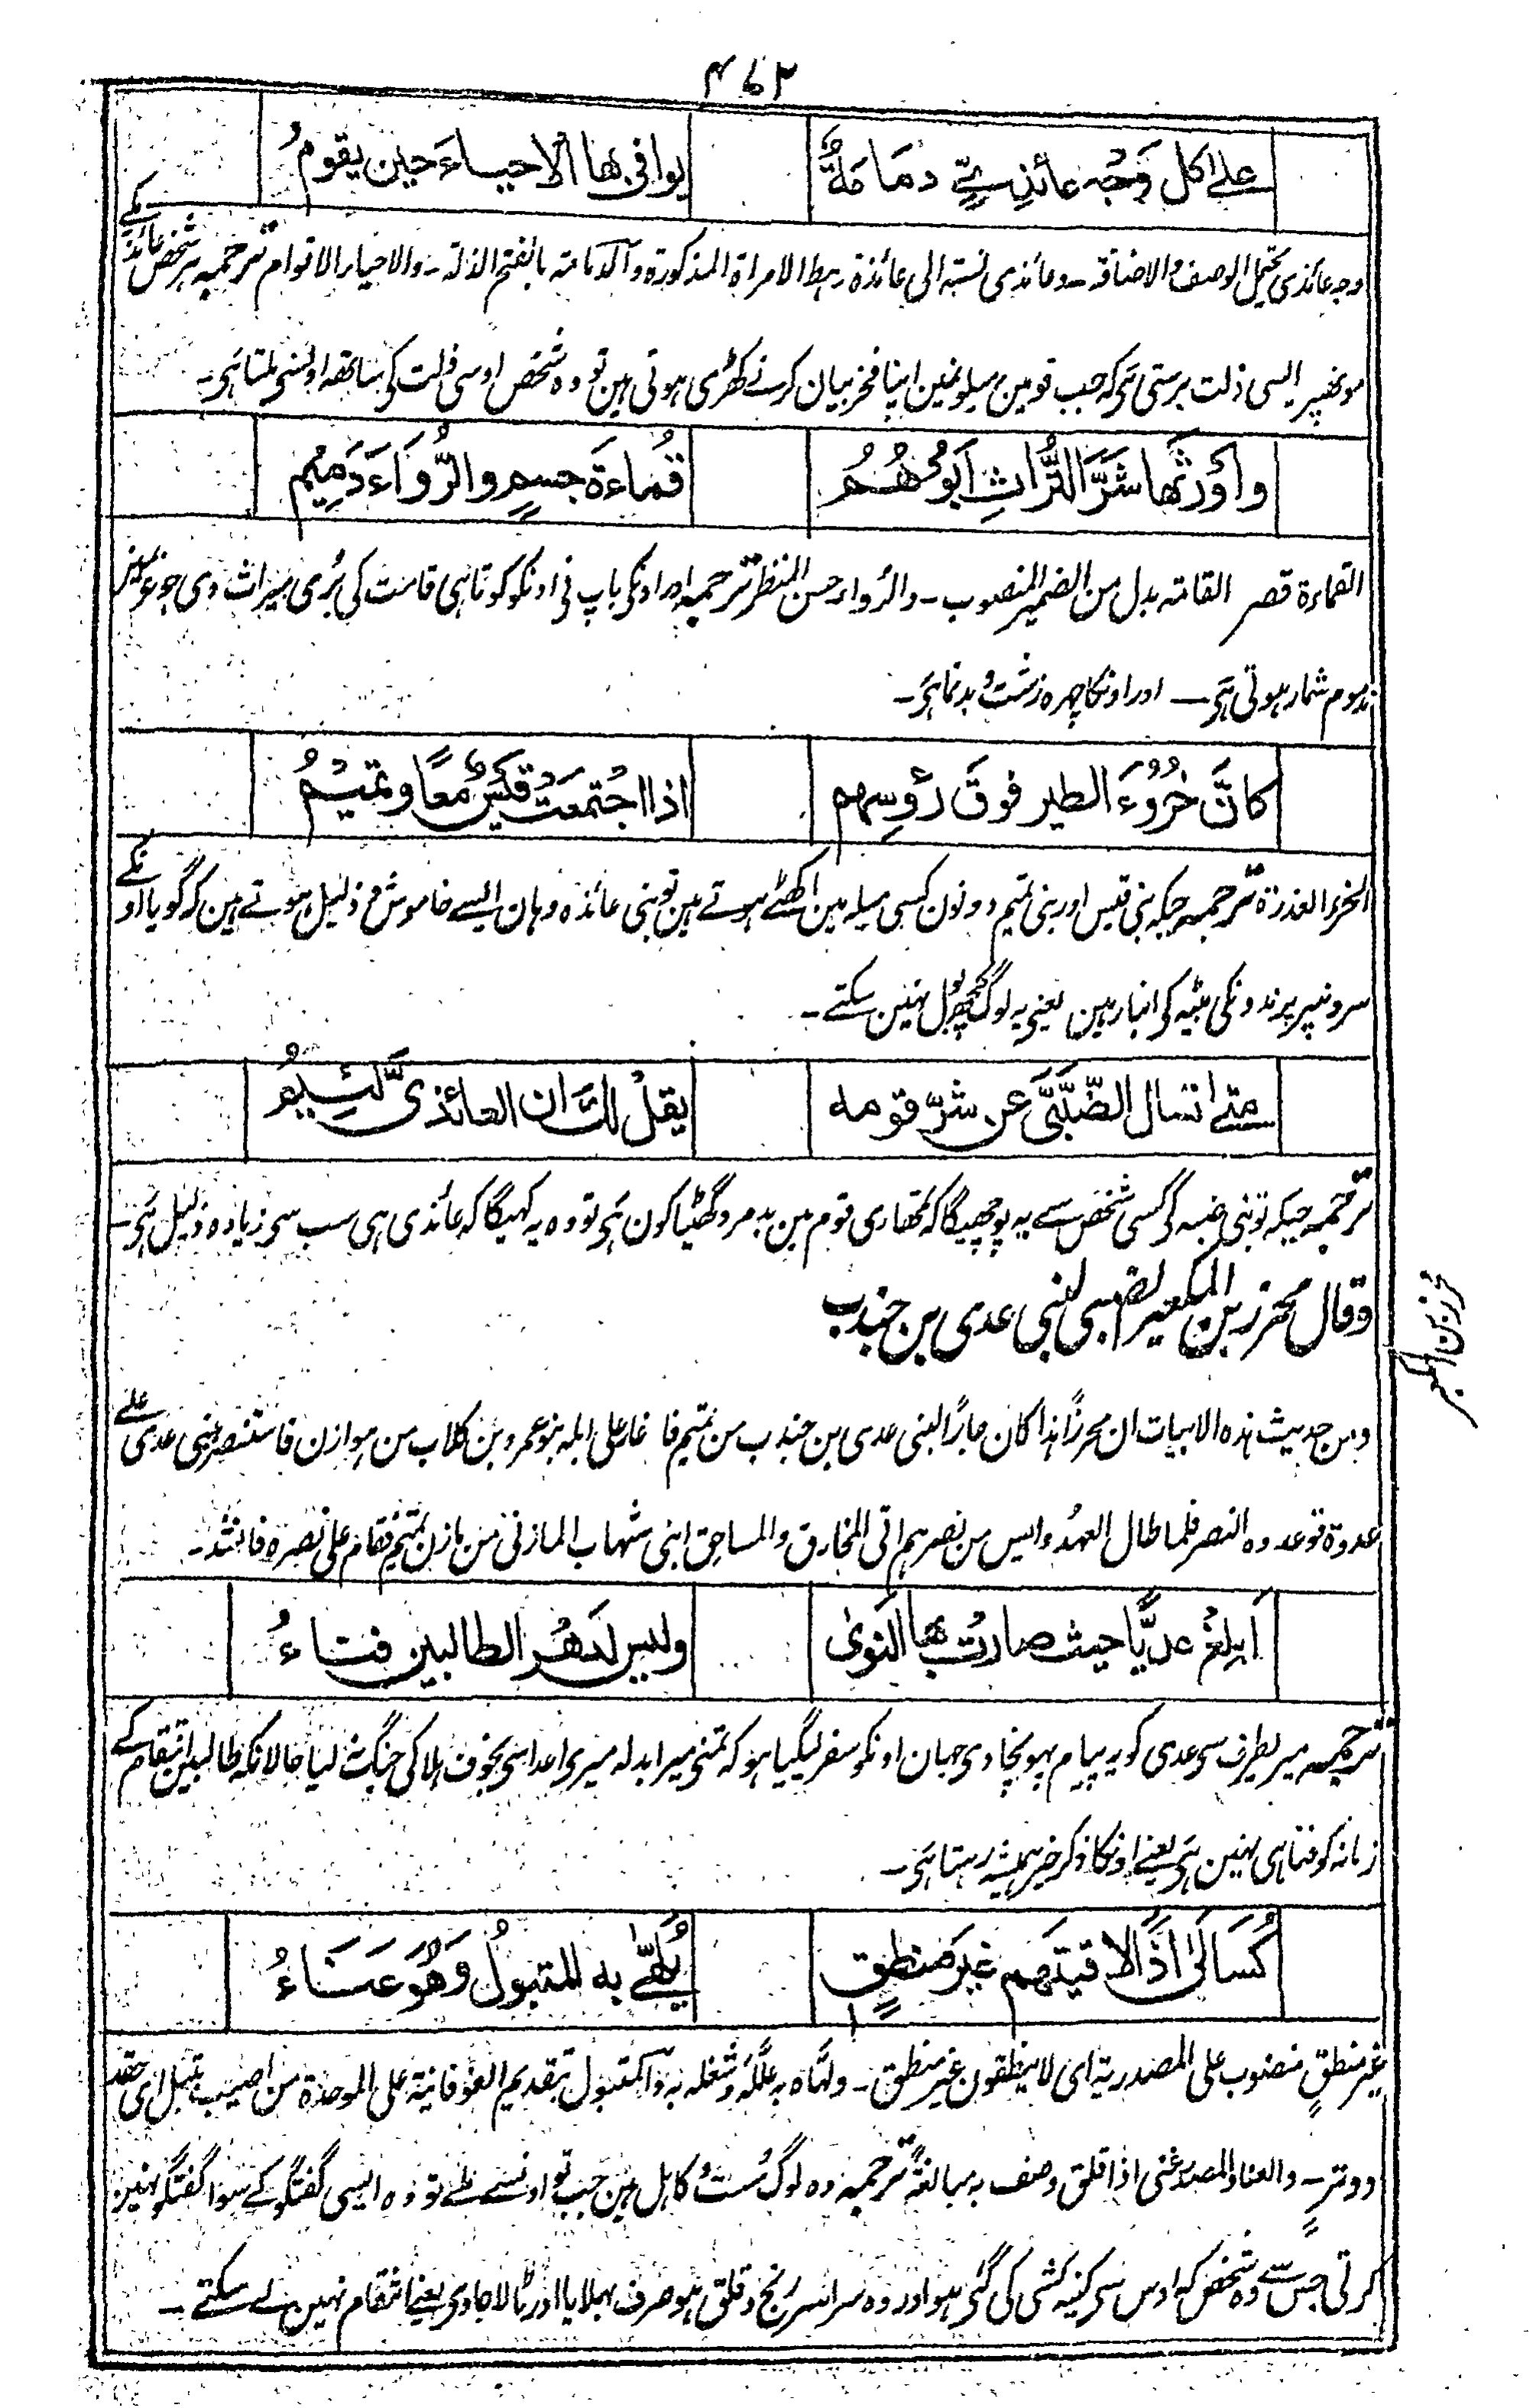 ۴۷۲
على كل وجه عائذيٍّ دمامةٌ يوافي بها الاحياءَ حين يقومُ
وجہ عائذی یحتمل الوصف والاضافۃ۔ وعائذی نسبتہ الی عائذۃ رہط الامراۃ المذکورۃ والدمامتہ بالفتح الذلۃ۔ والاحیاء الاقوام ترجمہ ہر شخص عائذی کے
مونھپر ایسی ذلت برستی ہَی کہ جب قومین میلونمین اپنا فخر بیان کرنے کھڑی ہوتی ہین تو وہ شخص اوسی ذلت کی ساتھہ اونسی ملتا ہَی۔
واَورَثَها شَرَّ التُّراثِ اَبُوهُمُ قَماءةَ جسمٍ والرُّواءُ دَمِيمُ
القماءۃ قصر القامتہ بدل من الضمیر المنصوب۔ والرُواء حسن المنظر ترجمہ اور اونکی باپ نی اونکو کوتاہی قامت کی بُری میراث دی جو عربمین
مذموم شمار ہوتی ہَی۔ اور اونکا چہرہ زشت و بدنما ہَی۔
كانَّ خُرُوءَ الطير فوقَ رؤسِهم اذا اجتمعتْ قيسٌ معًا وتميمُ
الخرء العذرۃ ترجمہ جبکہ بنی قیس اور بنی تمیم دونون کسی میلہ مین اکٹھے ہوتے ہین تو بنی عائذہ وہان ایسے خاموش و ذلیل ہوتے ہین کہ گویا اونکے
سرونپر پرندونکی بیٹہ کی انبار ہین یعنی یہ لوگ کچھ بول نہین سکتے۔
متى تسال الضَّبِّيَّ عن شرِّ قومه يقلْ لك ان العائذيَّ لئيمُ
ترجمہ جبکہ تو بنی ضبہ کی کسی شخص سے یہ پوچھیگا کہ تمھاری قوم مین بدمرد گھٹیا کون ہَی تو وہ یہ کہیگا کہ عائذی ہی سب سی زیادہ ذلیل ہَی۔
وقال محرز بن المکعبر الضبی لبنی عدی بن جندب
محرز بن المکعبر
ومن حدیث ہذہ الابیات ان محرزًا ہذا کان جارًا لبنی عدی بن جندب من تمیم فاغار علی ابلہ بنو عمرو بن کلاب من ہوازن فاستنصر بنی عدی علی
عدوہ فوعدوہ النصر فلما طال العہد وایس من نصرہم اتی المخارق والمساحق ابنی شہاب المازنی من مازن تمیم فقام علی نصرہ فانشد۔
اَبلِغْ عديًّا حيث صارت بها النوى وليس لدهر الطالبين فناءُ
ترجمہ میریطرف سی عدی کو یہ پیام پہونچا دی جہان اونکو سفر لیگیا ہو کہ تمنی میرا بدلہ میری اعدا سی بخوف ہلاکی جنگ نہ لیا حالانکہ طالبین انتقام کے
زمانہ کو فنا ہی نہین ہَی یعنے اونکا ذکر خیر ہمیشہ رہتا ہَی۔
كُسَالىٰ اذا لاقيتَهم غيرَ منطقٍ يُلهّىٰ به المتبولُ وَهوَ عَنَاءُ
غیر منطقٍ منصوب علی المصدریۃ ای لا ینطقون غیر منطق۔ ولہّاہ بہ علَّلہ وشغلہ بہ والمتبول بتقدیم الفوقانیۃ علی الموحدۃ من اصیب بتبل ای حقد
ووترٍ۔ والعناء المصدر عنی اذا قلق وصف بہ مبالغۃً ترجمہ وہ لوگ سُست و کاہل ہین جب تو اونسے ملے تو وہ ایسی گفتگو کے سوا گفتگو نہین
کرتی جس سے وہ شخص کہ اوس سی کینہ کشی کی گئی ہو اور وہ سراسر رنج و قلق ہو صرف بہلایا اور ٹالا جاوی یعنے انتقام نہین لے سکتے۔